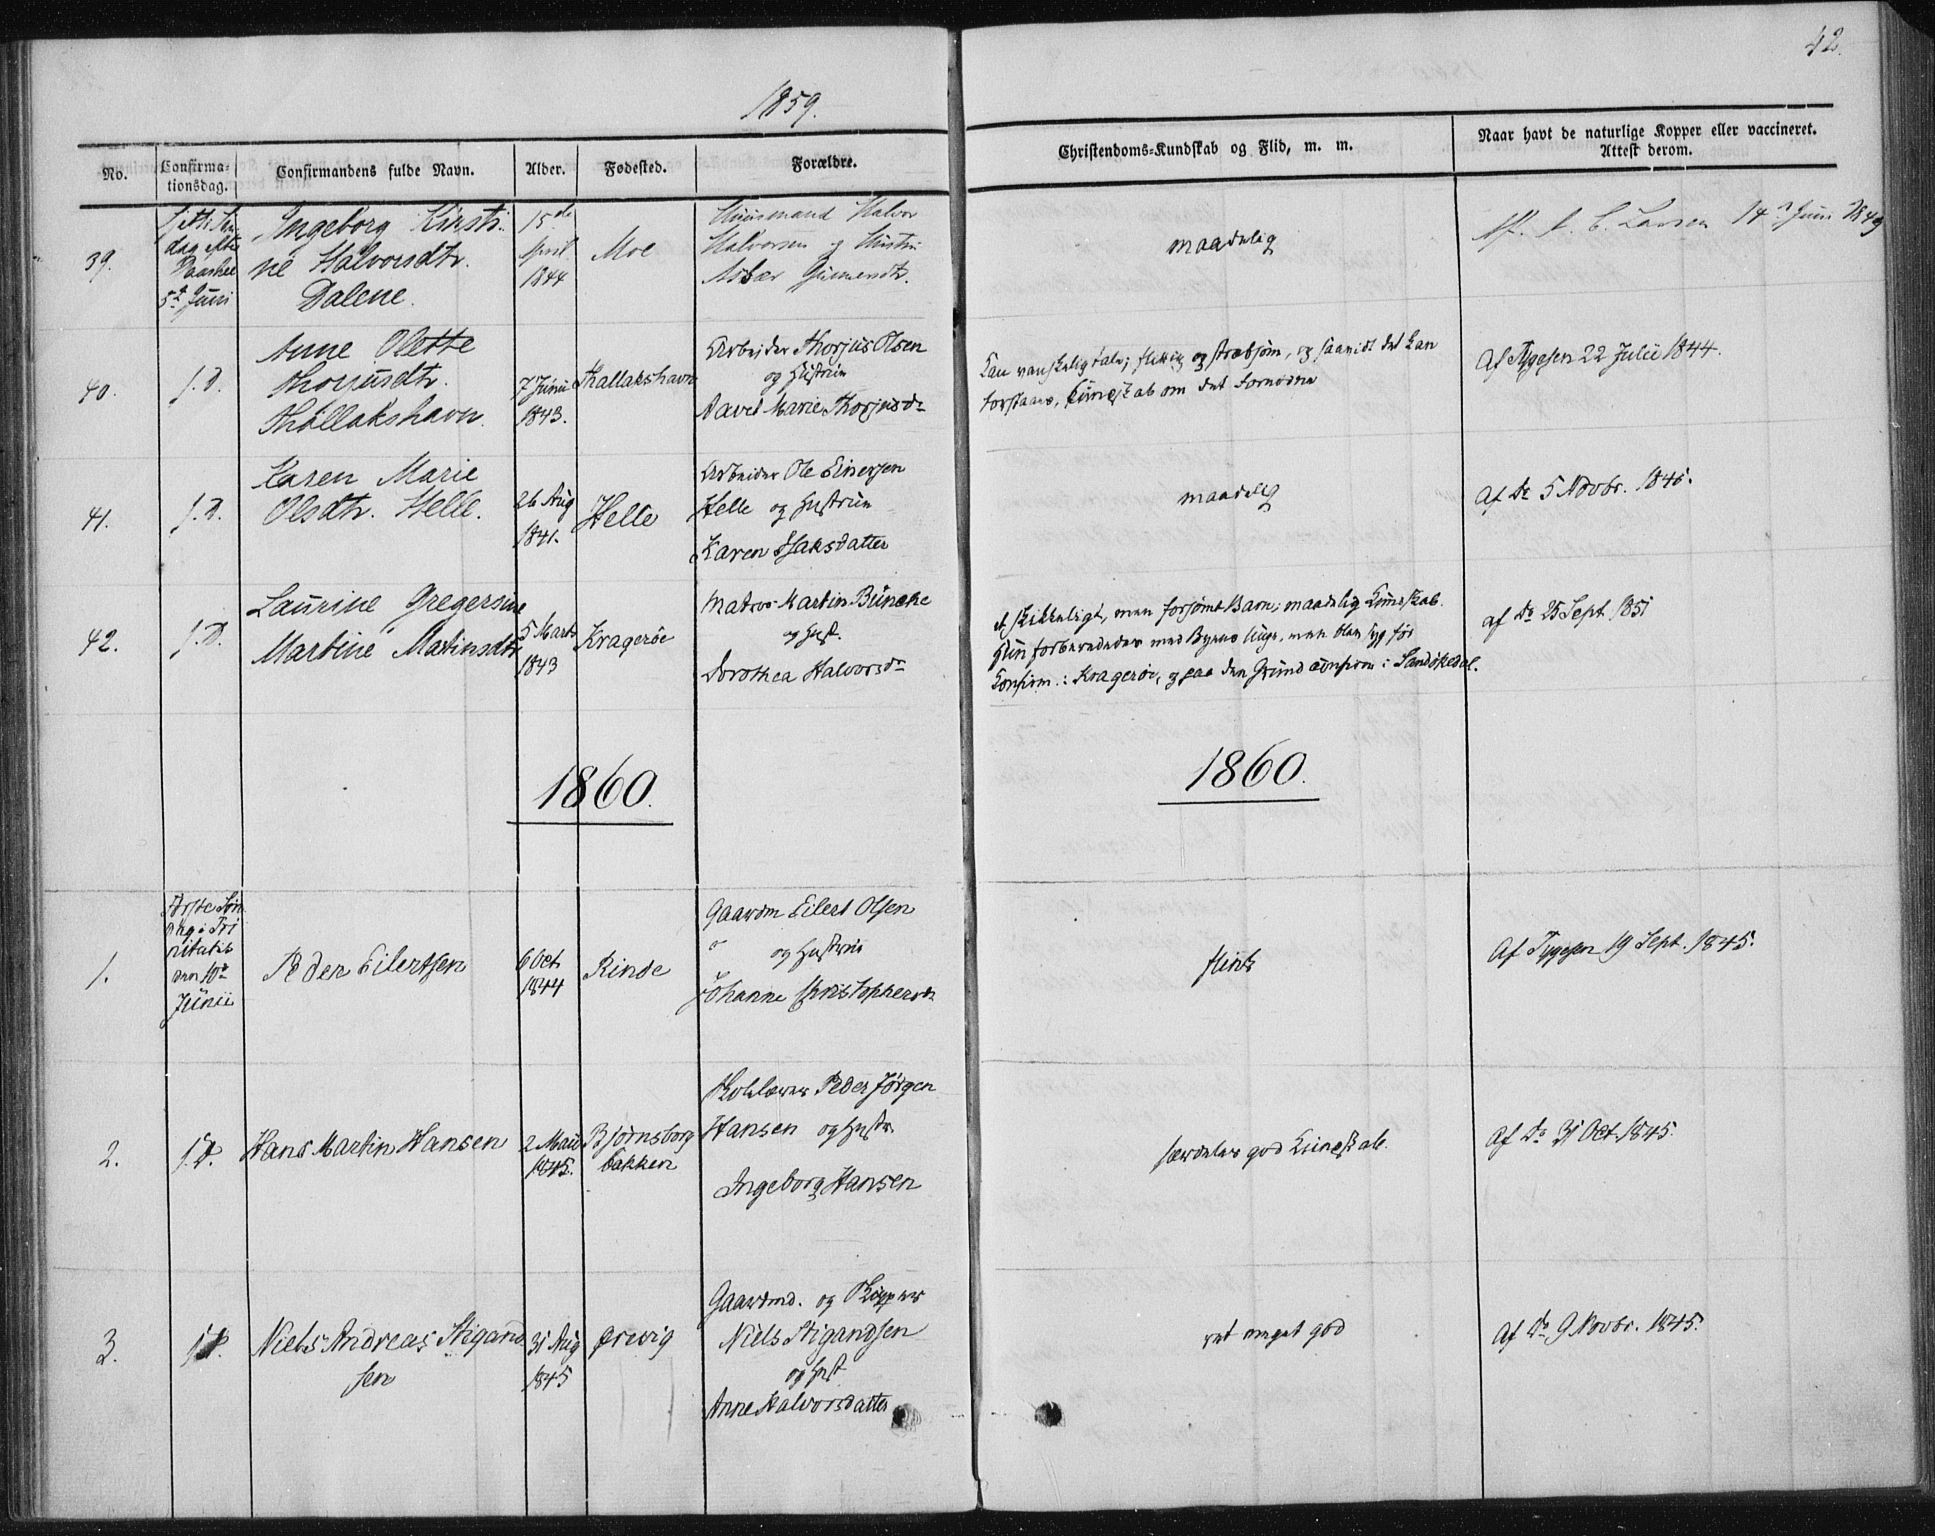 42.
1859.
No.
Confirma-
tionsdag.
Confirmandens fulde Navn.
Alder.
Fødested.
Forældre.
Christendoms-Kundskab og Flid, m. m.
Naar havt de naturlige Kopper eller vaccineret.
Attest derom.
39.
dag efter
Paaske
5te Juni
Ingeborg Kirsti-
ne Halvorsdtr.
Dalene.
15de
April
1844
Moe
Huusmand Halvor
Halvorsen og Hustru
maadelig
Af L. C. Larsen 14de Juni 1849
40.
s. D.
Anne Olette
Thorjusdtr.
Thallakshavn.
7 Junii
1843.
Thallakshavn
Arbeider Thorjus Olsen
og Hustrue
Marie Thorjusdr
Kan vanskelig tale; flittig og stræbsom, og saavidt det kan
forstaaes, Kundskab om det fornødne
Af Tygesen 22 Julii 1844.
41.
s. D.
Karen Marie
Olsdtr. Helle.
26 Aug
1841.
Helle
Arbeider Ole Einersen
Helle og Hustrue
Karen Isaksdatter
maadelig
Af Do 5 Novbr. 1845.
42.
s. D.
Laurine Gregersine
Martine Martinsdtr
5 Marts
1843
Kragerøe
Matros Martin Büncke
og Hust.
Dorothea Halvorsdr
et skikkeligt, men forsømt Barn; maadelig Kundskab.
Hun forberededes med Byens Unge, men blev syg før
Konfirm. i Kragerøe, og paa den Grund confirm. i Sandøkedal.
af Do 25 Sept 1851
1860.
1860.
1.
Første Søn
dag i Tri
nitatis
den 10de
Junii
Peder Eilertsen
6 Oct
1844
Rinde
Gaardm Eilert Olsen
og Hustrue
Johanne Christophersdr
flink
Af Tygesen 19 Sept. 1845.
2.
s. D.
Hans Martin Hansen
2 Maii
1845.
Bjørnsborg
bakken
Skolelærer Peder Jørgen
Hansen og Hustr.
Ingeborg Hansen
særdeles god Kundskab.
Af Do 31 Oct. 1845.
3.
s. D.
Niels Andreas Stigand-
sen
31 Aug
1845
Ørevig
Gaardmd. og Skipper
Niels Stigandsen
og Hust
Anne Halvorsdatter
ret meget god
Af Do 9 Novbr. 1845.